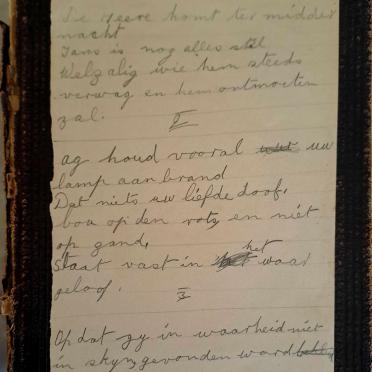 De Heere komt ter midder
nacht
Tans is nog alles stil
Welzalig wie hem steeds
verwag en hem ontmoeten
zal.
II
ag houd vooral uw
lamp aan brand
Dat niets uw liefde doof.
bou op den rots, en niet
op zand,
Staat vast in het waar
geloof.
III
Opdat zy in waarheid niet
in skyn, gevonden ward